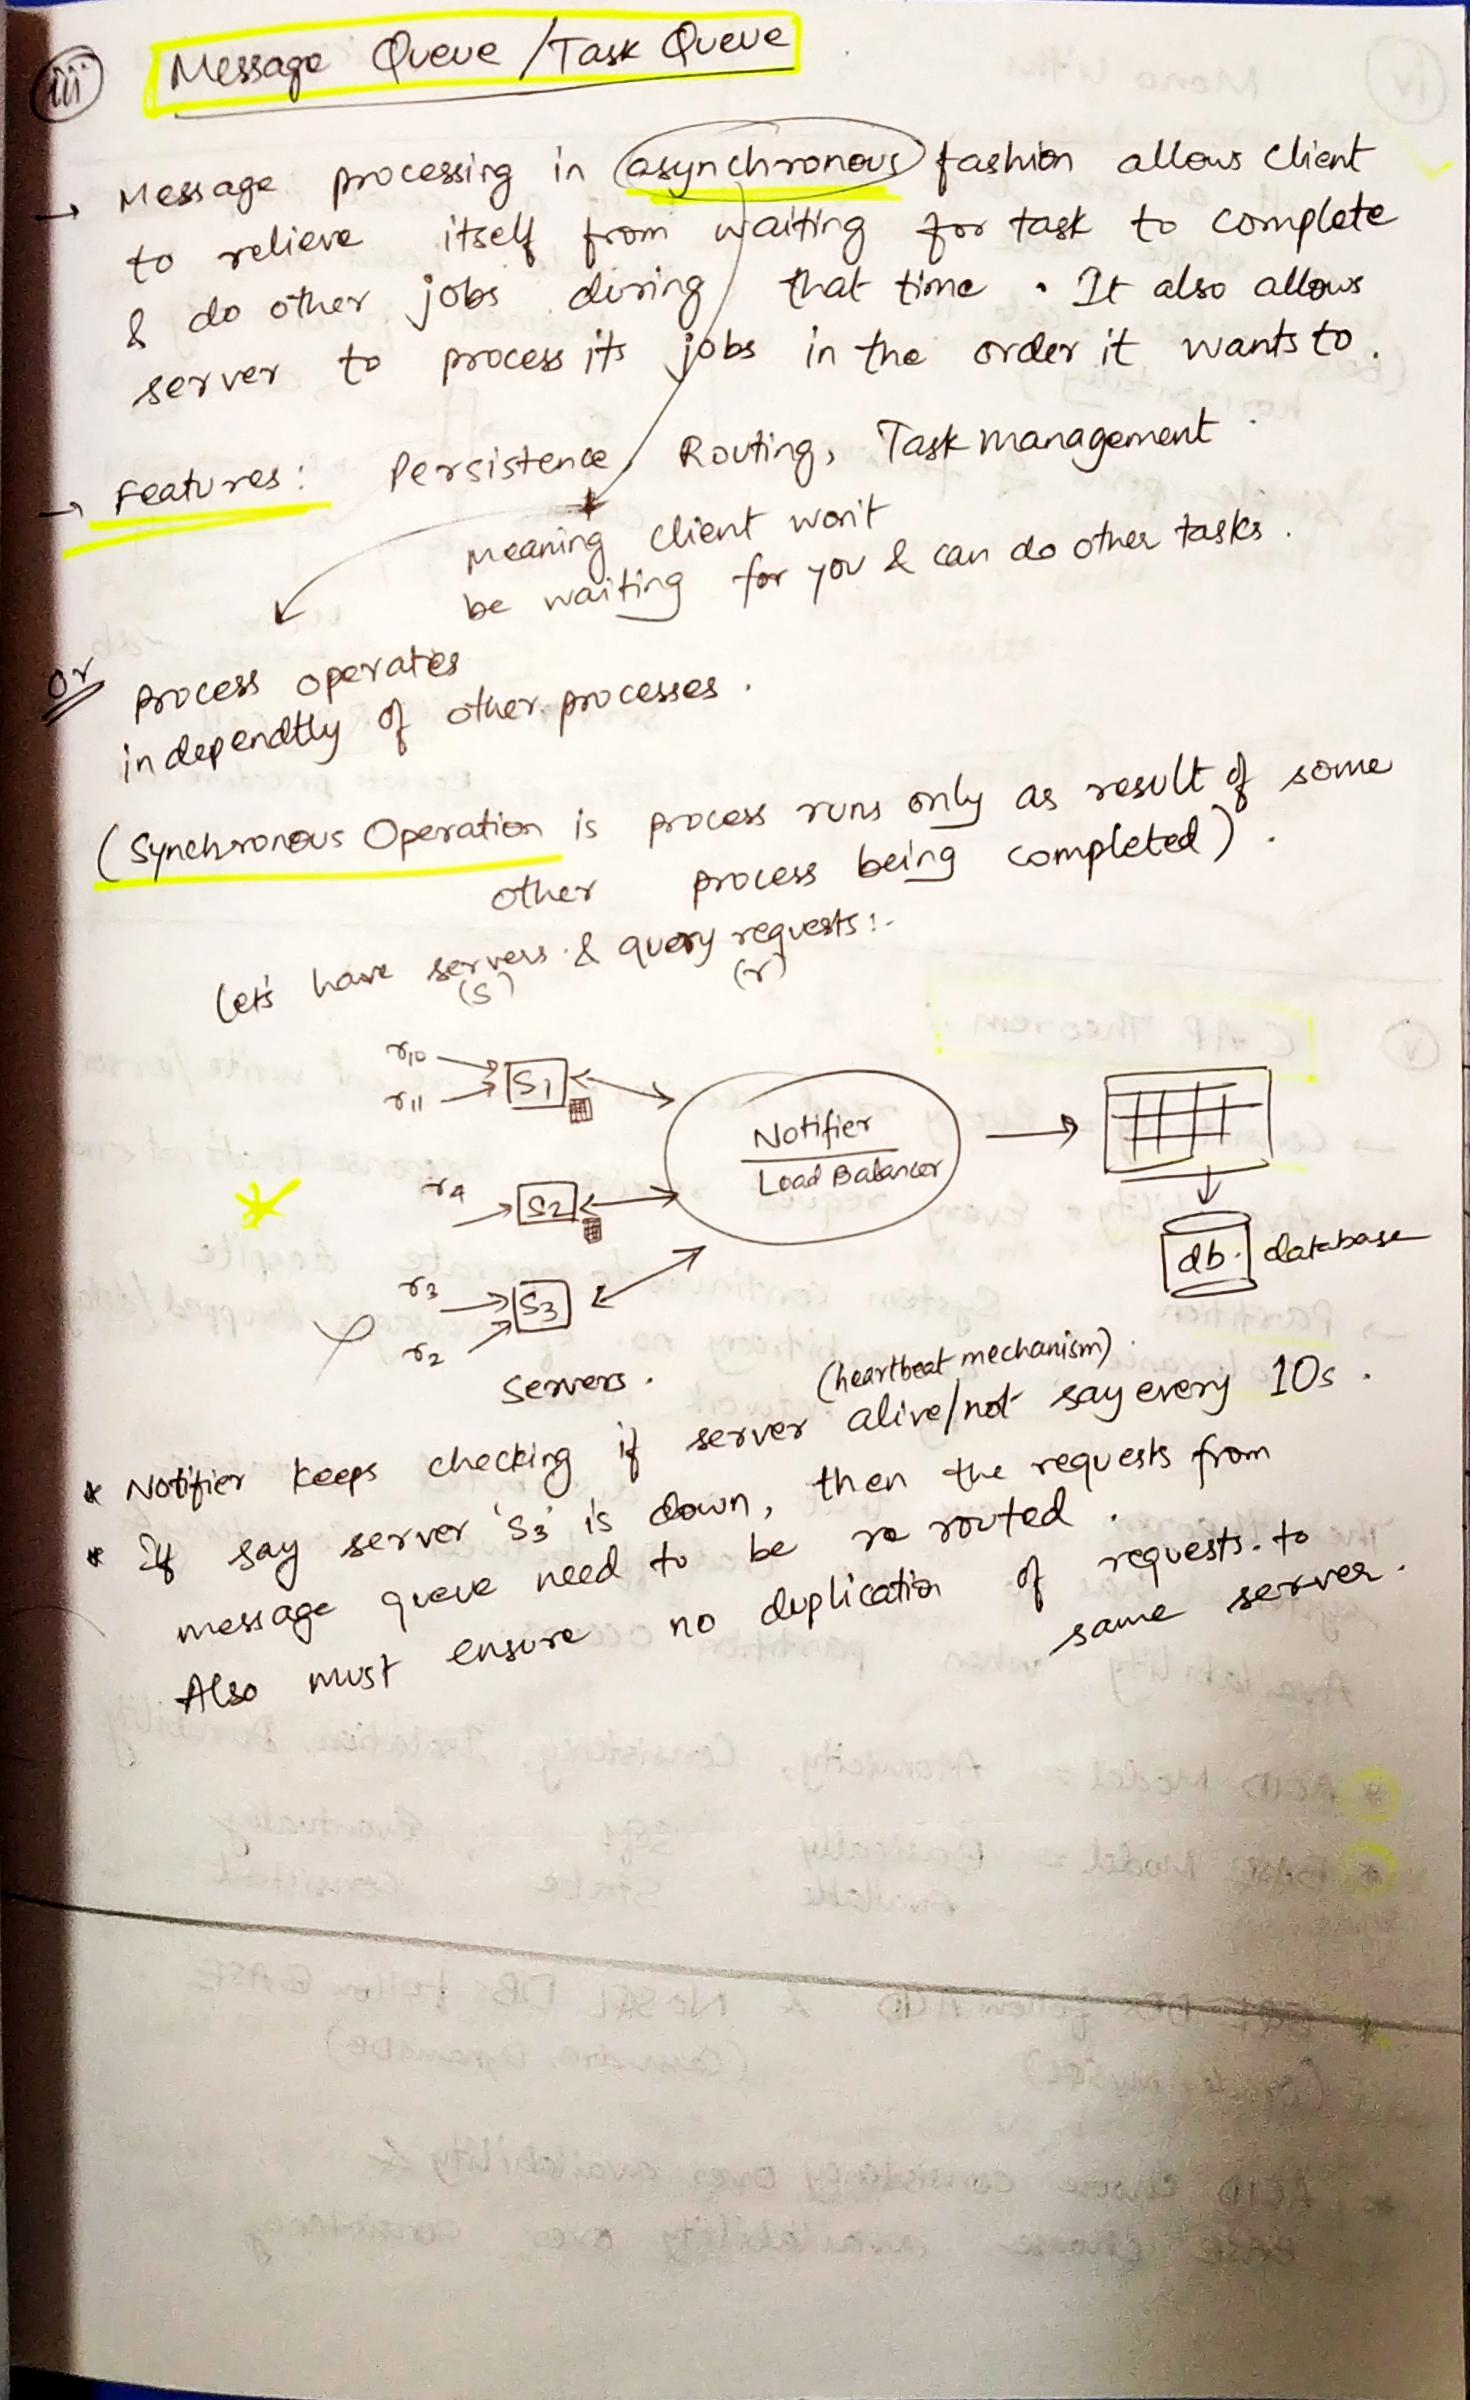 iii Message Queue / Task Queue
→ Message processing in asynchronous fashion allows client
to relieve itself from waiting for task to complete
& do other jobs during that time. It also allows
server to process its jobs in the order it wants to.
→ Features: Persistence, Routing, Task management
Meaning client won't
be waiting for you & can do other tasks.
or process operates
independtly of other processes.
(Synchronous Operation is process runs only as result of some
other process being completed).
Let's have servers & query requests:-
(S) (r)
r10
r11 S1
Notifier
Load Balancer
r4 S2
db. database
r3 S3
r2
servers.
(heartbeat mechanism)
* Notifier keeps checking if server alive/not say every 10s.
* If say server 'S3' is down, then the requests from
message queue need to be re routed.
Also must ensure no duplication of requests. to
same server.